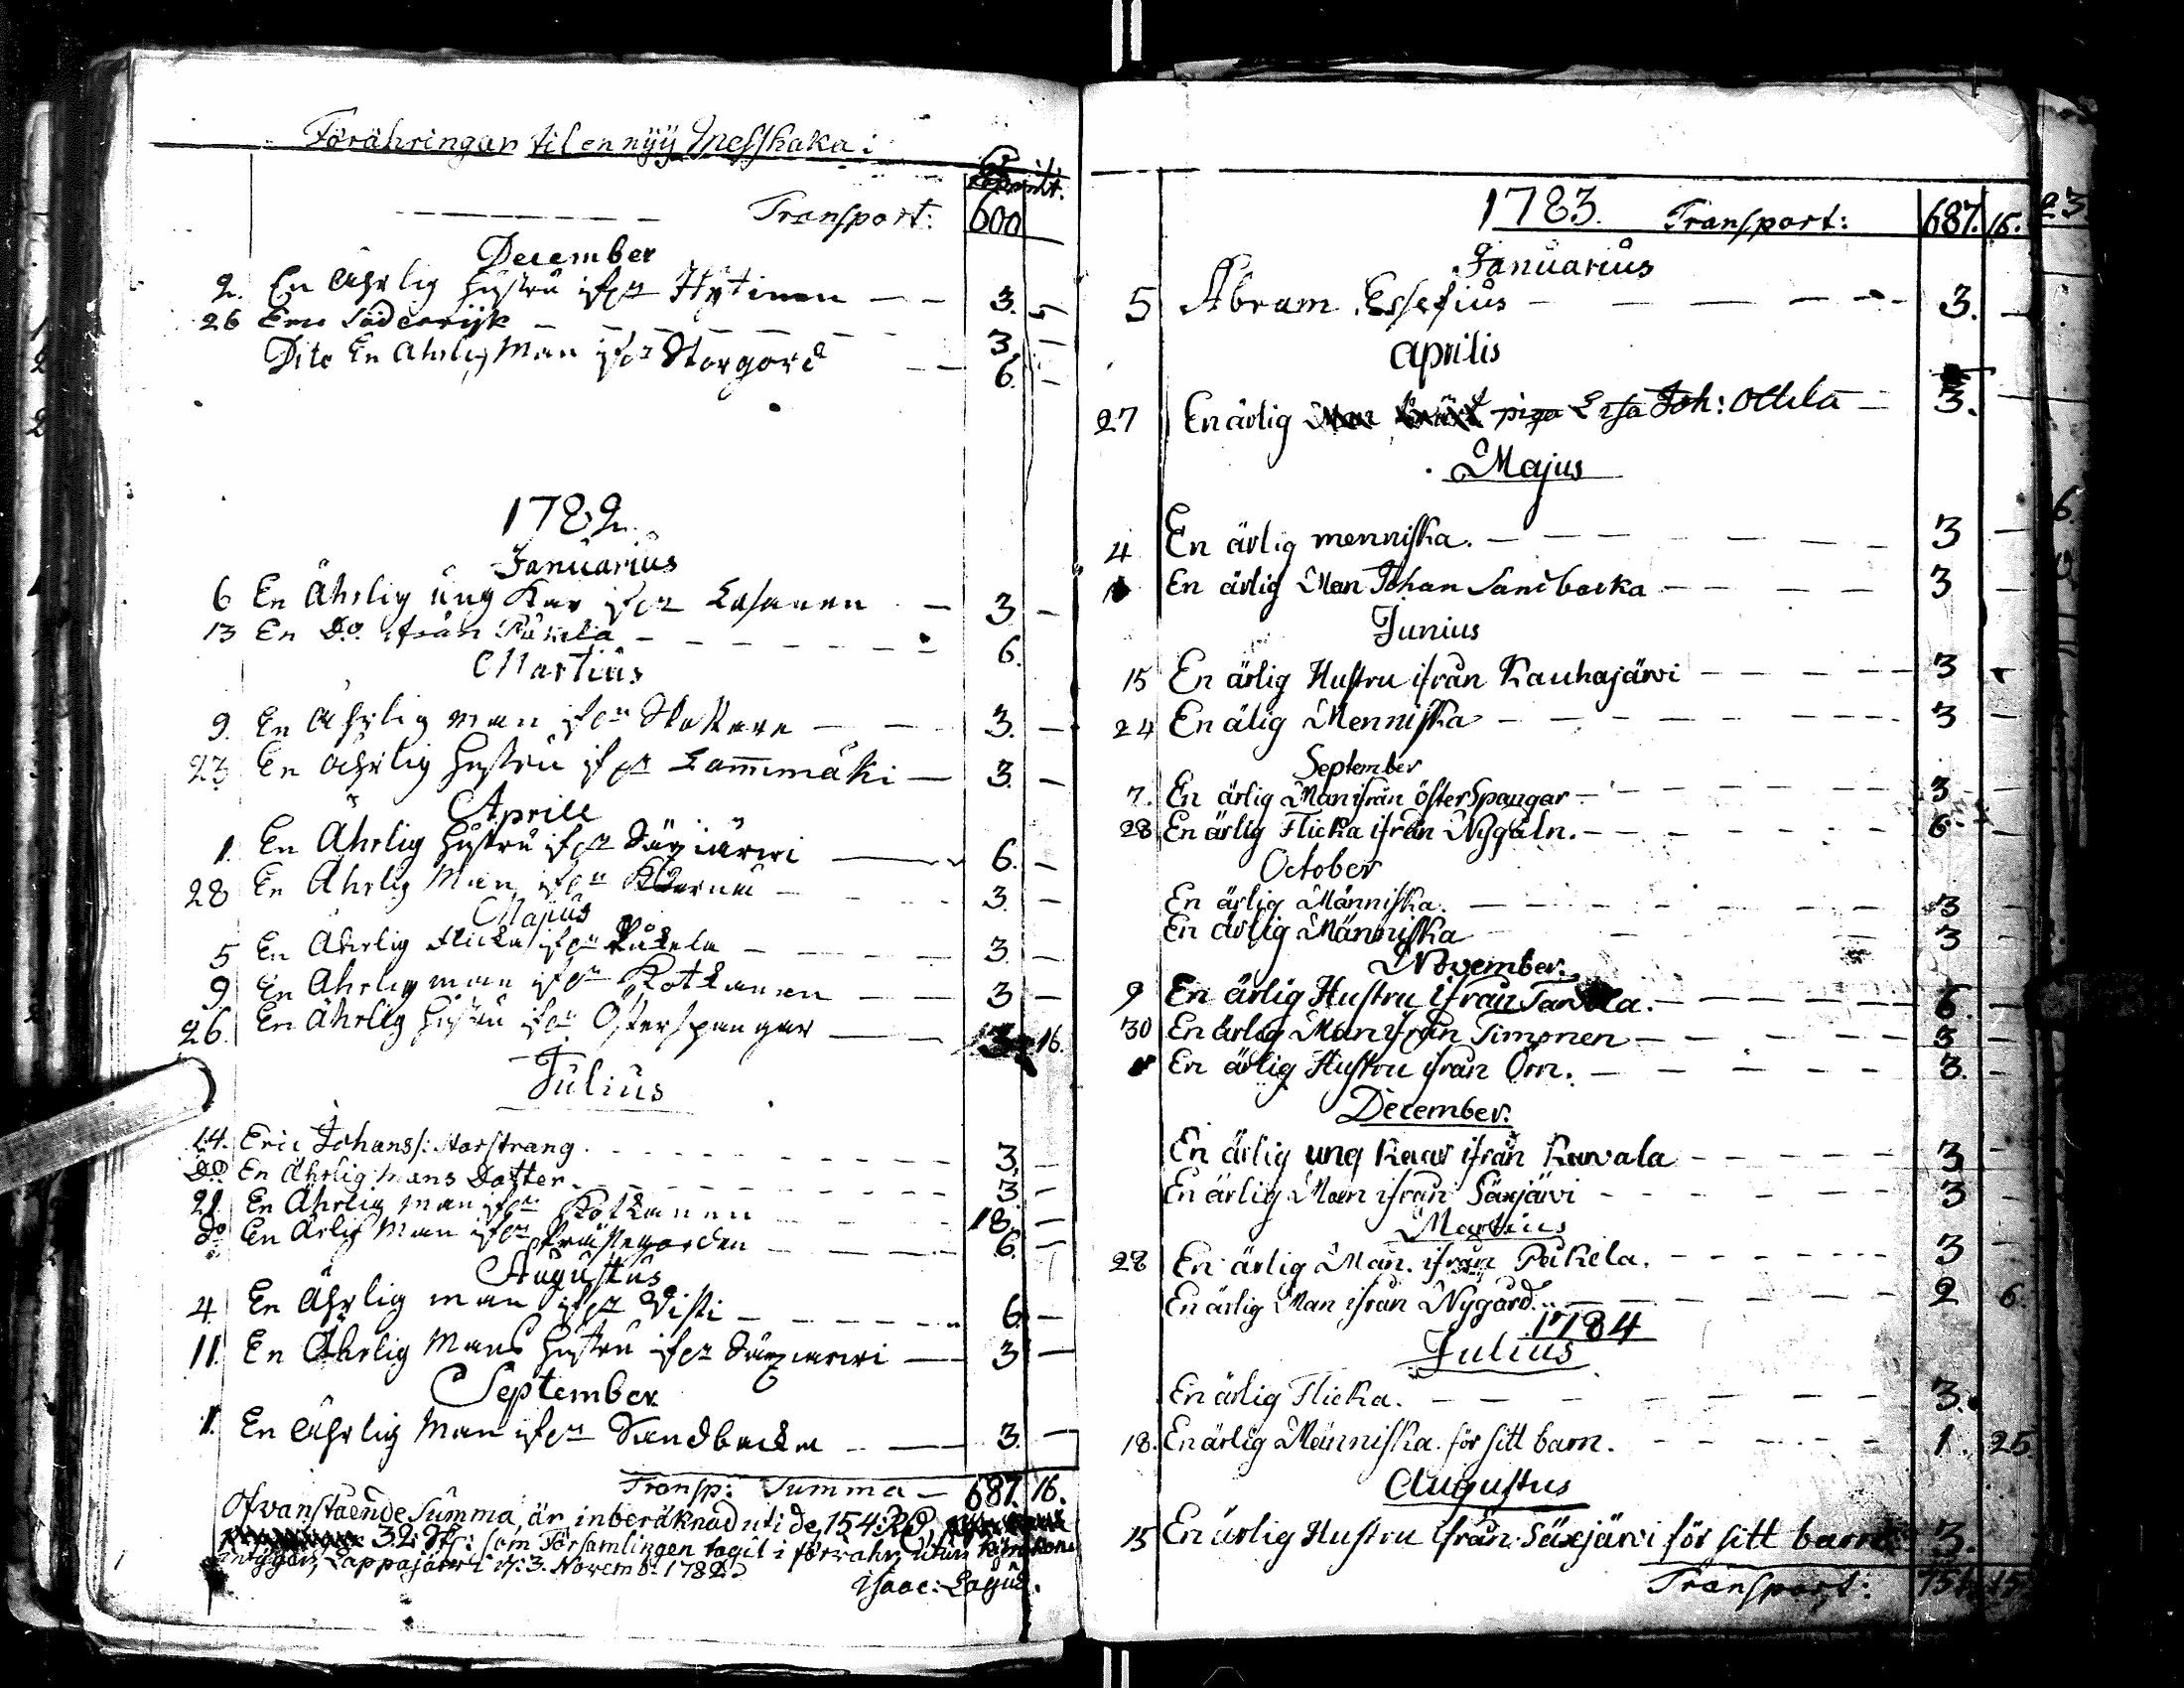 Förähringar til en nyÿ Messhaka:
Transport: 600
December
2. En Ährlig Hustru ifrån Hytinen — 3. —
26 Eric Söderrijk — 3. —
Dito En Ahrlig Man ifrån Storgord — 6. —
1782.
Januarius
6 En Ährlig ung Kar ifrån Lasanen — 3 —
13 En Do. ifrån Pukela — 6.
Martius
9. En Ährlig man ifrån — 3. —
23 En Ährlig Hustru ifrån Lammmäki — 3. —
Aprill
1. En Ährlig Hustru ifrån Säxiärwi — 6. —
28 En Ährlig Man ifrån — 3. —
Majus
5 En Ährlig Flicka ifrån Pukela — 3. —
9. En Ahrlig man ifrån Kotkanen — 3 —
26. En Ährlig Hustru ifrån Österspengar — 13 16.
Julius
14. Eric Johanss: Norstrang — 3. —
Do. En Ährlig Mans Dotter. — 3. —
21. En Ährlig man ifrån Kotkanen — 18. —
do En Ärlig Man ifrån Prästegorden — 6. —
Augustus
4. En Ährlig man ifrån Visti — 6. —
11. En Ährlig Mans Hustru ifrån Säxiarwi — 3 —
September
1. En Ährlig Man ifrån Sandbacka — 3. —
Transp: Summa — 687. 16.
Ofvanstående Summa, är inberäknad uti de, 154: Rd,
32: som Församlingen tagit i förvahr,
Lappajärvi d. 3. Novemb: 1782.
Isaac: Lagus.
1783. Transport: 687. 16.
Januarius
5 Abram Essefius — 3. —
Aprilis
27 En ärlig piga Lisa Joh: Ottila — 3.
Majus
4 En ärlig menniska. — 3 —
En ärlig Man Johan Sandbacka — 3 —
Junius
15 En ärlig Hustru ifrån Kauhajärvi — 3 —
24 En älig Menniska — 3 —
September
7. En ärlig Man ifrån östersSpangar — 3 —
28 En ärlig Flicka ifrån Nygåln. — 6 —
October
En ärlig Människa. — 3 —
En ärlig Människa — 3 —
November.
9 En ärlig Hustru ifrån — 6. —
30 En ärlig Man ifrån Timonen — 3 —
En ärlig Hustru ifrån Örn. — 3. —
December.
En ärlig ung Kaar ifrån Kuvala — 3 —
En ärlig Man ifrån Säxjärvi — 3 —
Martius
28 En ärlig Man. ifrån Pukela. — 3 —
En ärlig Man ifrån Nygård. — 2 6.
1784
Julius
En ärlig Flicka. — 3.
18. En ärlig Människa för sitt barn. — 1. 25
Augustus
15 En ärlig Hustru ifrån Säxjärvi för sitt barn — 3.
Transport: